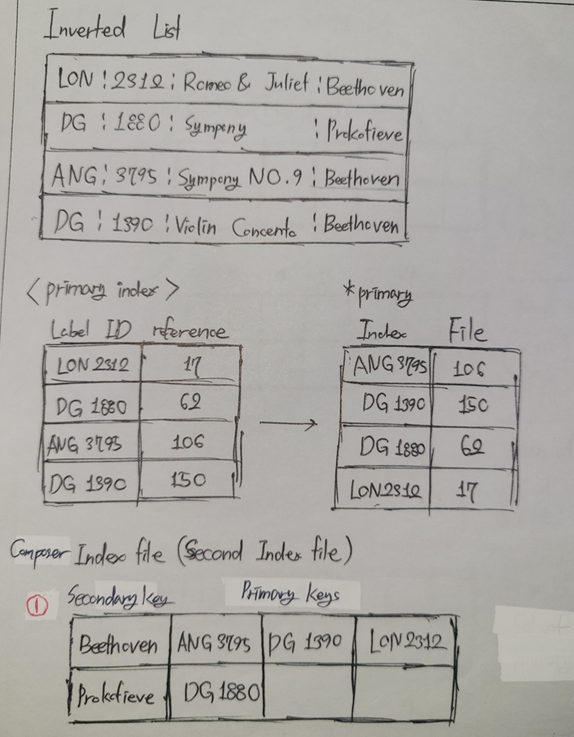 Inverted List
LON ¦ 2312 ¦ Romeo & Juliet ¦ Beethoven
DG ¦ 1880 ¦ Sympony ¦ Prokofieve
ANG ¦ 3795 ¦ Sympony NO.9 ¦ Beethoven
DG ¦ 1390 ¦ Violin Concerto ¦ Beethoven
<primary index>
Label ID reference
LON 2312 17
DG 1880 62
ANG 3795 106
DG 1390 150
→
*primary
Index File
ANG 3795 106
DG 1390 150
DG 1880 62
LON2312 17
Composer Index file (Second Index file)
① Secondary key Primary keys
Beethoven ANG 3795 DG 1390 LON2312
Prokofieve DG 1880